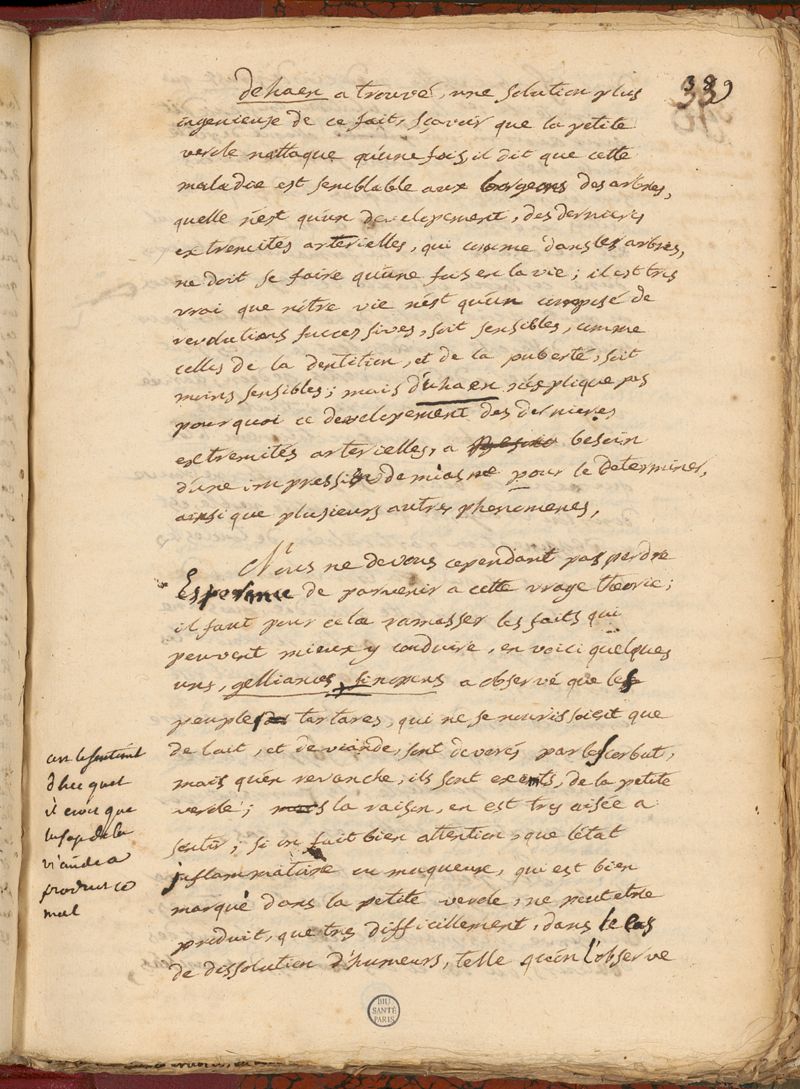 389
dehaen a trouvé, une solution plus
ingenieuse de ce fait, sçavoir que la petite
verole nattaque qu'une fois, il dit que cette
maladie est semblable aux borgeons des arbres,
quelle n'est qu'un developement, des dernieres
extremités arterielles, qui comme dans les arbres,
ne doit se faire qu'une fois en la vie; il est tres
vrai que nôtre vie n'est qu'un composé de
revolutions successives, soit sensibles, comme
celles de la dentition, et de la puberté, soit
moins sensibles; mais d'uhaen n'explique pas
pourquoi ce developement des dernieres
extremités arterielles, a besoin
d'une impression de miasme pour le determiner,
ainsi que plusieurs autres phenomenes,
Nous ne devons cependant pas perdre
Esperance de parvenir a cette vraye theorie;
il faut pour cela ramasser les faits qui
peuvent mieux y conduire, en voici quelques
uns, a observé que les
peuples tartares, qui ne se nourissoient que
de lait, et de viande, sont devorés par le scorbut,
mais qu'en revanche, ils sont exemts, de la petite
verole; la raison, en est tres aisée a
sentir; si on fait bien attention, que l'état
inflammatoire ou muqueux, qui est bien
marqué dans la petite verole, ne peut etre
produit, que tres difficillement, dans le cas
de dissolution d'humeurs, telle qu'on l'observe
le sentiment
d'hecquet
il croit que
l'usage de la
viande a
produit ce
mal
BIU
SANTÉ
PARIS